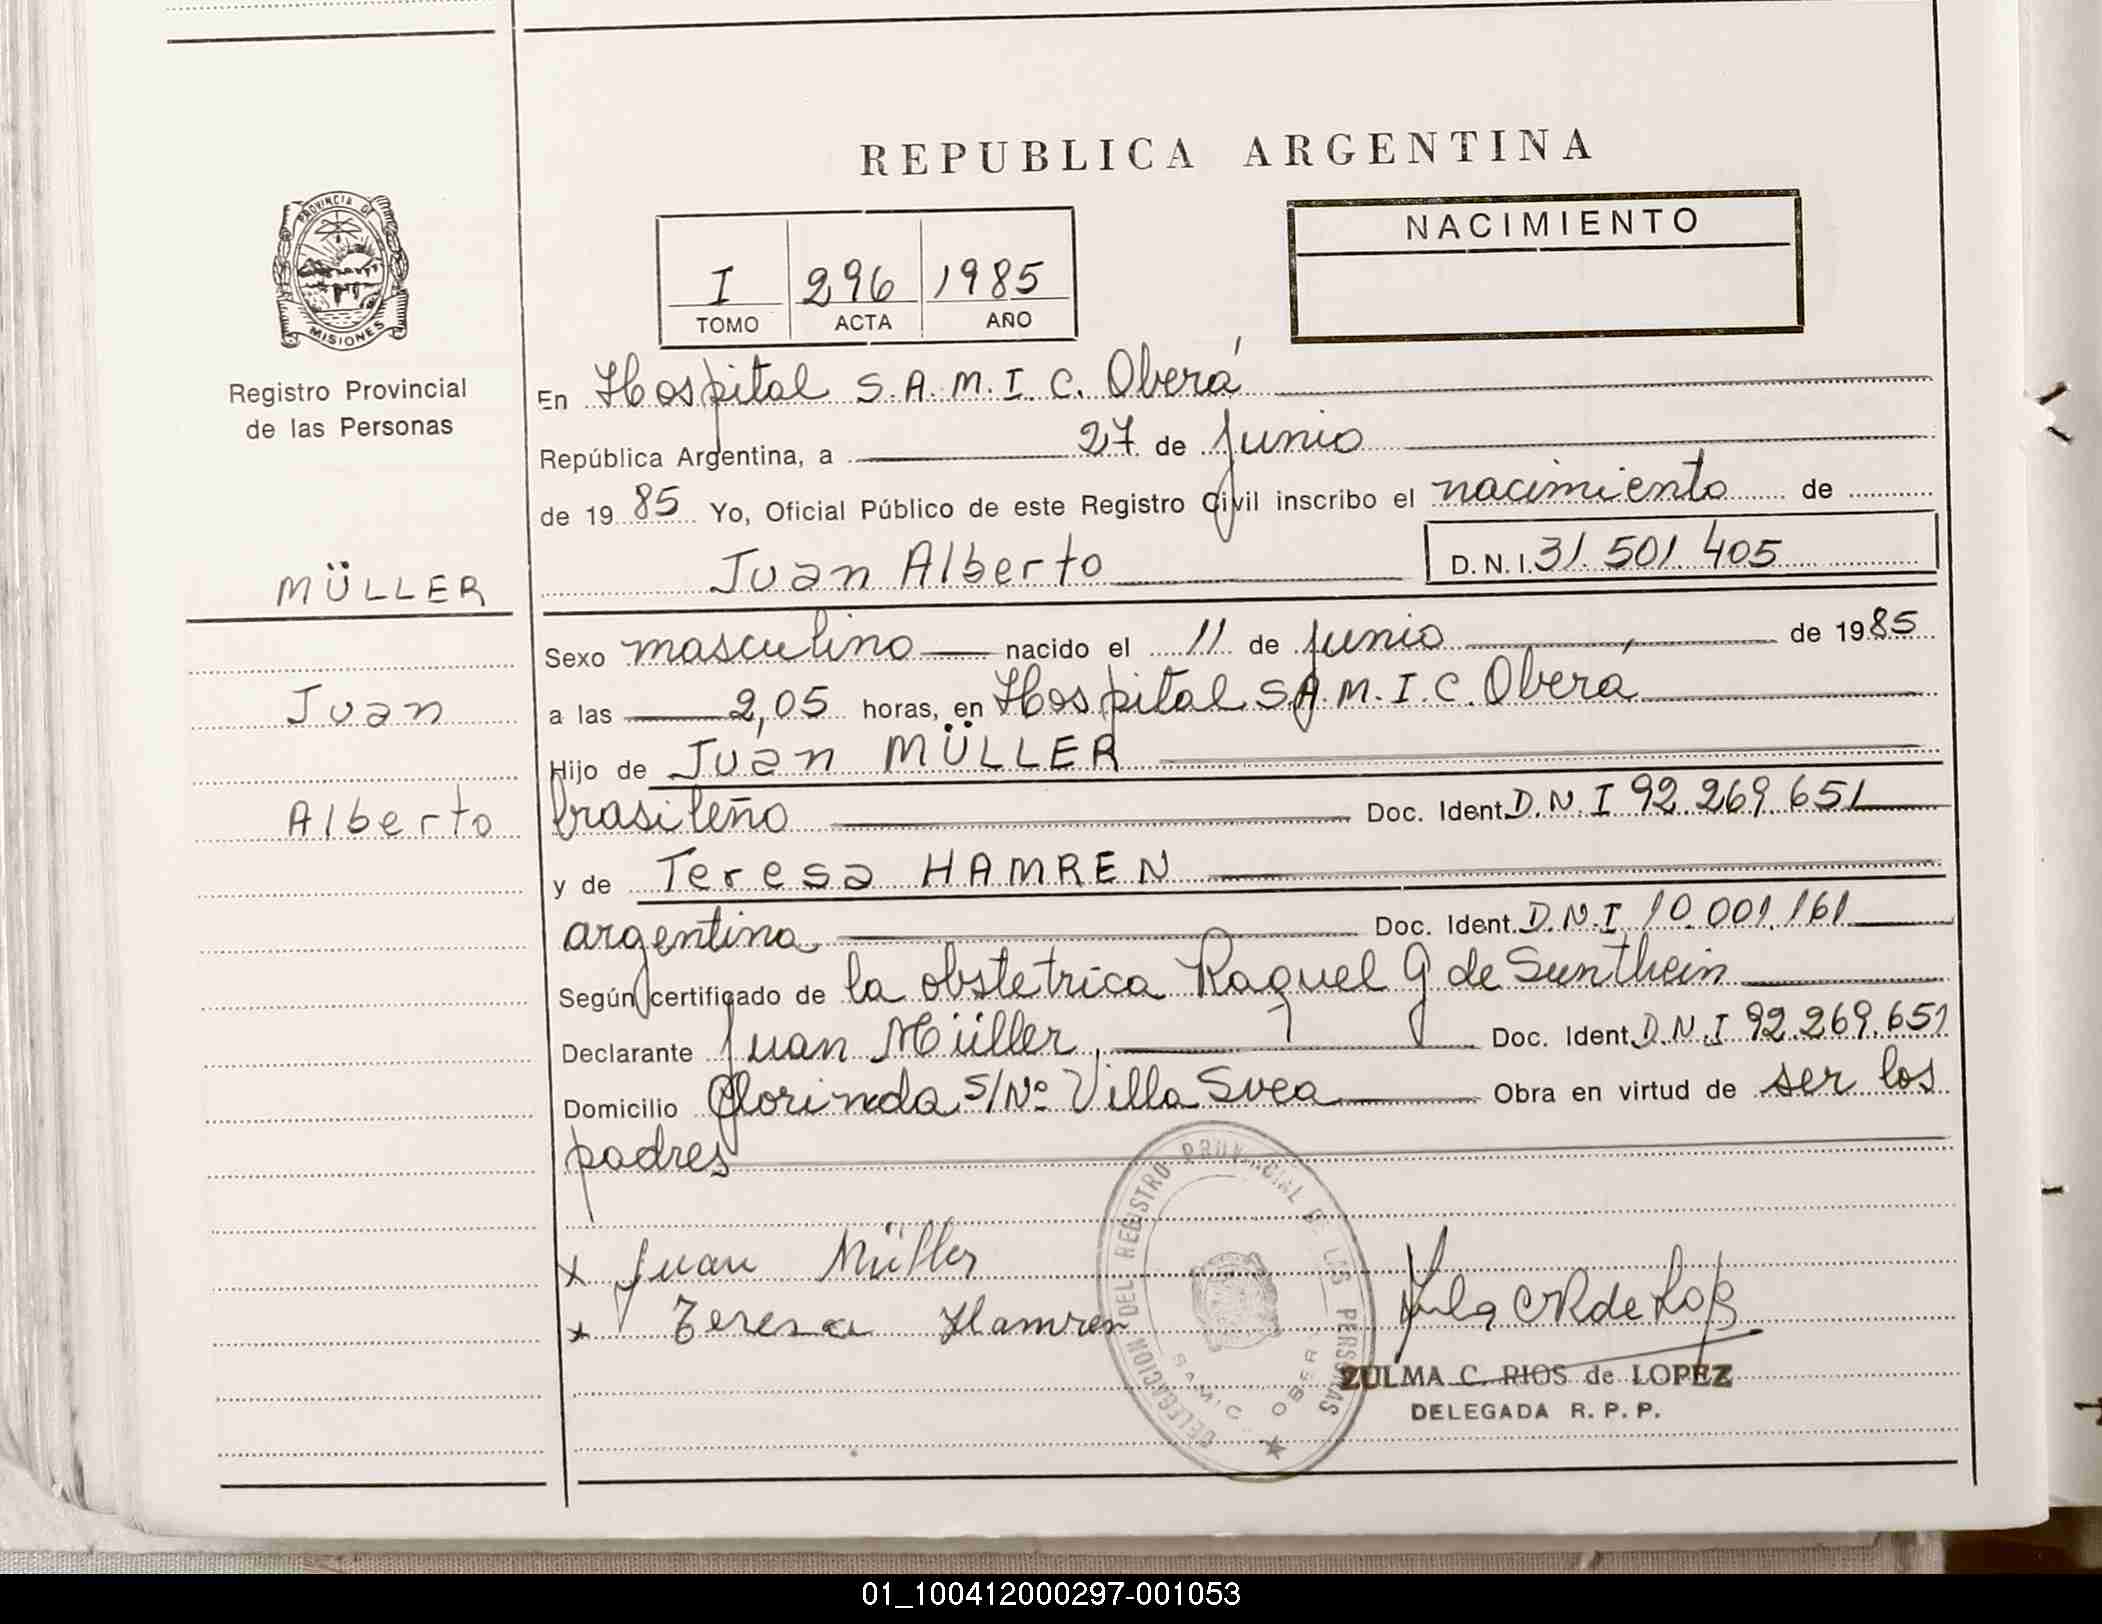 REPUBLICA ARGENTINA
PROVINCIA DE
MISIONES
Registro Provincial
de las Personas
I 296 1985
TOMO ACTA AÑO
NACIMIENTO
En Hospital S.A.M.I.C. Oberá
República Argentina, a 27 de Junio
de 1985 Yo, Oficial Público de este Registro Civil inscribo el nacimiento de
Juan Alberto D.N.I. 31.501.405
MÜLLER
Juan
Alberto
Sexo masculino nacido el 11 de Junio de 1985
a las 2,05 horas, en Hospital S.A.M.I.C. Oberá
Hijo de Juan MÜLLER
brasileño Doc. Ident. D.N.I 92.269.651
y de Teresa HAMREN
argentina Doc. Ident. D.N.I 10.001.161
Según certificado de la obstetrica Raquel G de Sunthein
Declarante Juan Müller, Doc. Ident. D.N.I 92.269.651
Domicilio Florinda S/Nº Villa Svea Obra en virtud de ser los
padres
x Juan Müller
x Teresa Hamren
DELEGACION DEL REGISTRO PROVINCIAL DE LAS PERSONAS
S.A.M.I.C. OBERA
ZULMA C. RIOS de LOPEZ
DELEGADA R. P. P.
01_100412000297-001053